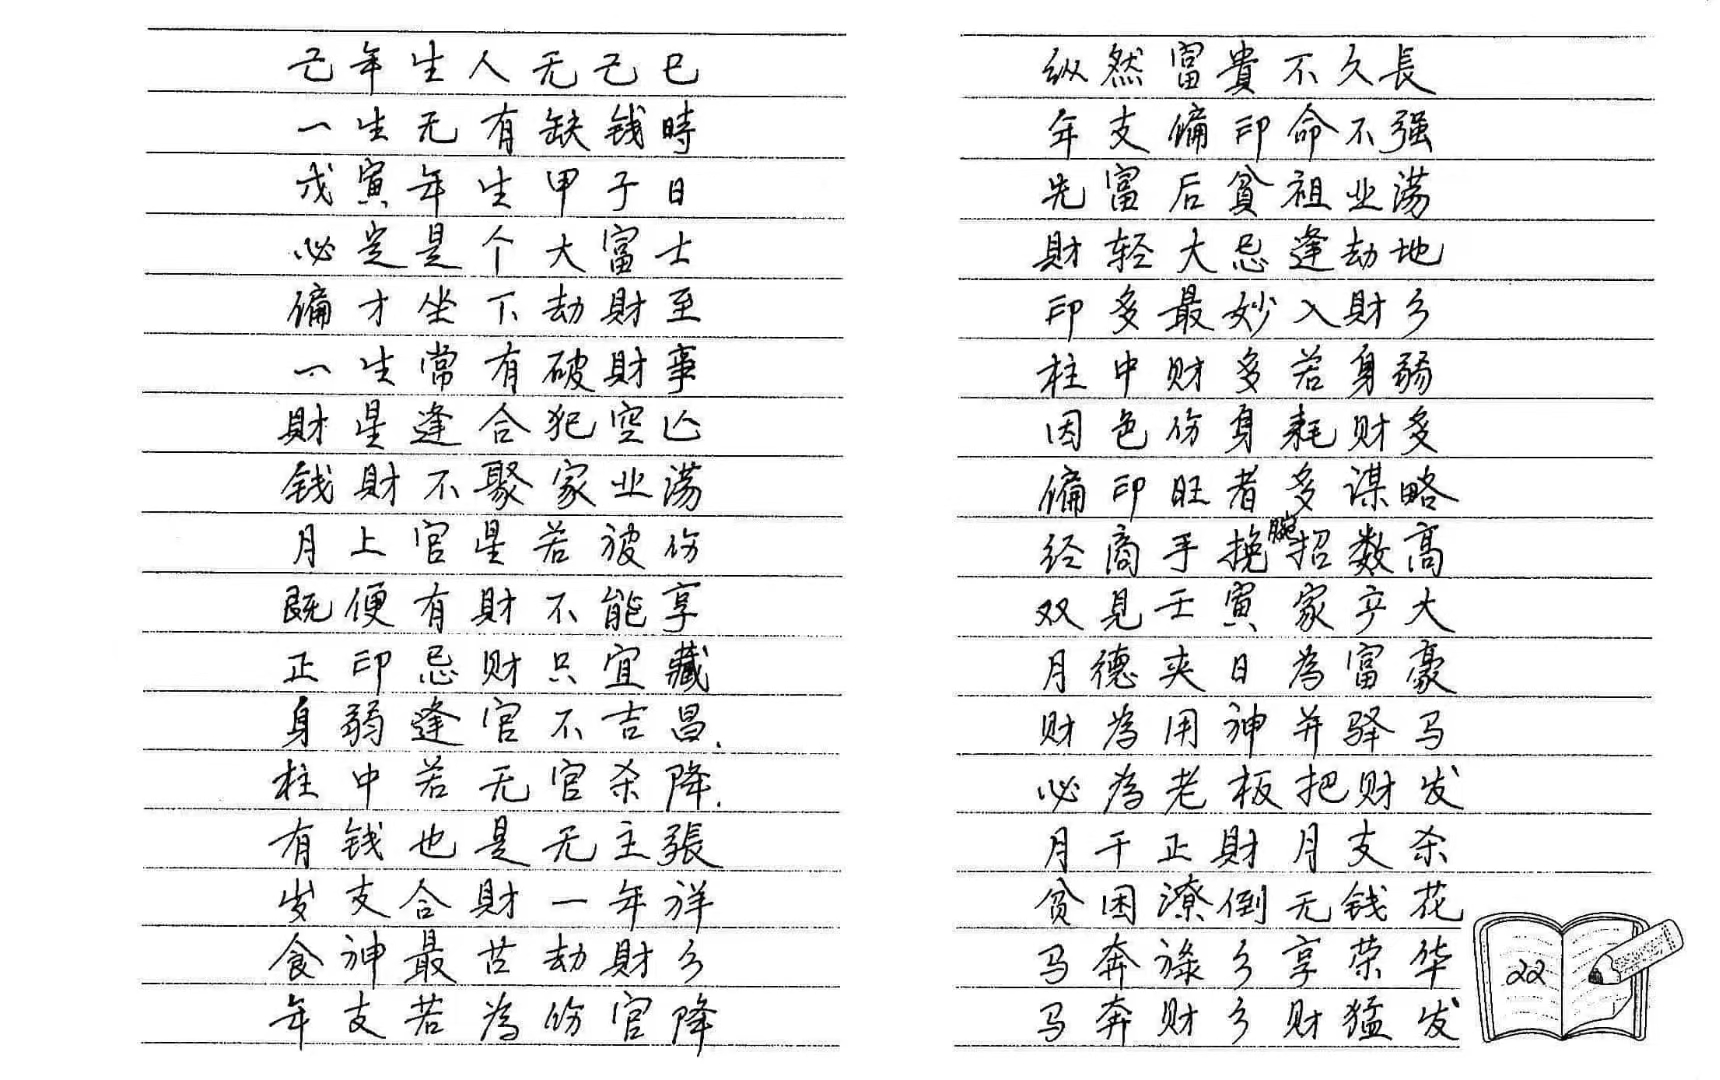 己年生人无己巳
一生无有缺钱時
戊寅年生甲子日
必定是个大富士
偏才坐下劫財至
一生常有破財事
財星逢合犯空亡
钱財不聚家业荡
月上官星若被伤
既便有財不能享
正印忌财只宜藏
身弱逢官不吉昌.
柱中若无官杀降.
有钱也是无主張
岁支合財一年祥
食神最苦劫財乡
年支若為伤官降
纵然富貴不久長
年支偏印命不强
先富后貧祖业荡
財轻大忌逢劫地
印多最妙入財乡
柱中财多若身弱
因色伤身耗财多
偏印旺者多谋略
经商手挽腕招数高
双見壬寅家产大
月德夹日為富豪
财為用神并驿马
必為老板把财发
月干正財月支杀
贫困潦倒无钱花
马奔禄乡享荣华
马奔财乡财猛发
22